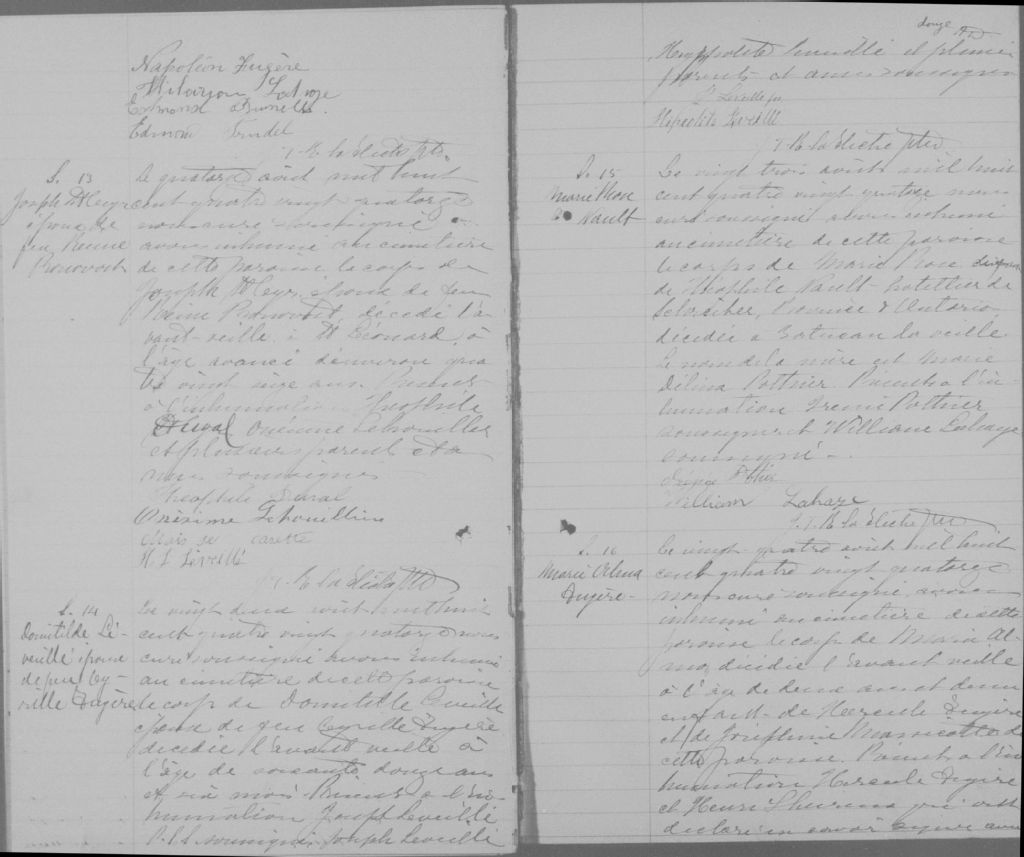 Napoléon Dugère
Hilarion Lahaze
Edmond Brunelle
Edmond Trudel
J. B. la Ptre
S. 13
Joseph St Cyr
époux de
feu Reine
Pronovost
Le quatorze août mil huit
cent quatre vingt quatorze
nous curé soussigné
avons inhumé au cimetière
de cette paroisse le corps de
Joseph St Cyr, époux de feu
Reine Pronovost, décédé l'a-
vant-veille à St Léonard, à
l'âge avancé d'environ qua
tre vingt seize ans. Présents
à l'inhumation Théophile
Duval Onésime
et plusieurs parents et a
mis soussignés
Théophile Duval
Onésime
H. L. Léveillé
S. 14
Domitilde Lé-
veillé épouse
de feu Cy-
rille Dugère
Le vingt deux août mil huit
cent quatre vingt quatorze nous
curé soussigné avons inhumé
au cimetière de cette paroisse
le corps de Domitilde Leveillé
épouse de feu Cyrille Dugère
décédée l'avant veille à
l'âge de soixante douze ans
et six mois. Présents à l'in-
humation Joseph Leveillé
soussigné, Joseph Leveillé
douze
Hyppolite Leveillé et plusieurs
parents et amis soussignés
J. Leveillé
Hipolite Leveillé
S. 15
Marie Rose
Nault
Le vingt trois août mil huit
cent quatre vingt quatorze nous
curé soussigné avons inhumé
au cimetière de cette paroisse
le corps de Marie Rose
de Théophile Nault hôtellier de
Schreiber, Province d'Ontario
décédée à Batiscan la veille.
Le nom de la mère est Marie
Délina Pothier. Présents à l'in-
humation Pothier
soussigné et William Lahaye
soussigné.
William Lahaze
S. 16
Marie Alma
Dugère
Le vingt-quatre août mil huit
cent quatre vingt quatorze
nous curé soussigné, avons
inhumé au cimetière de cette
paroisse le corps de Marie Al-
ma, décédée l'avant veille
à l'âge de deux ans et demi
enfant de Hercule Dugère
et de Josephine Massicotte de
cette paroisse. Présents à l'in
humation Hercule Dugère
et Henri qui ont
déclaré ne savoir signer